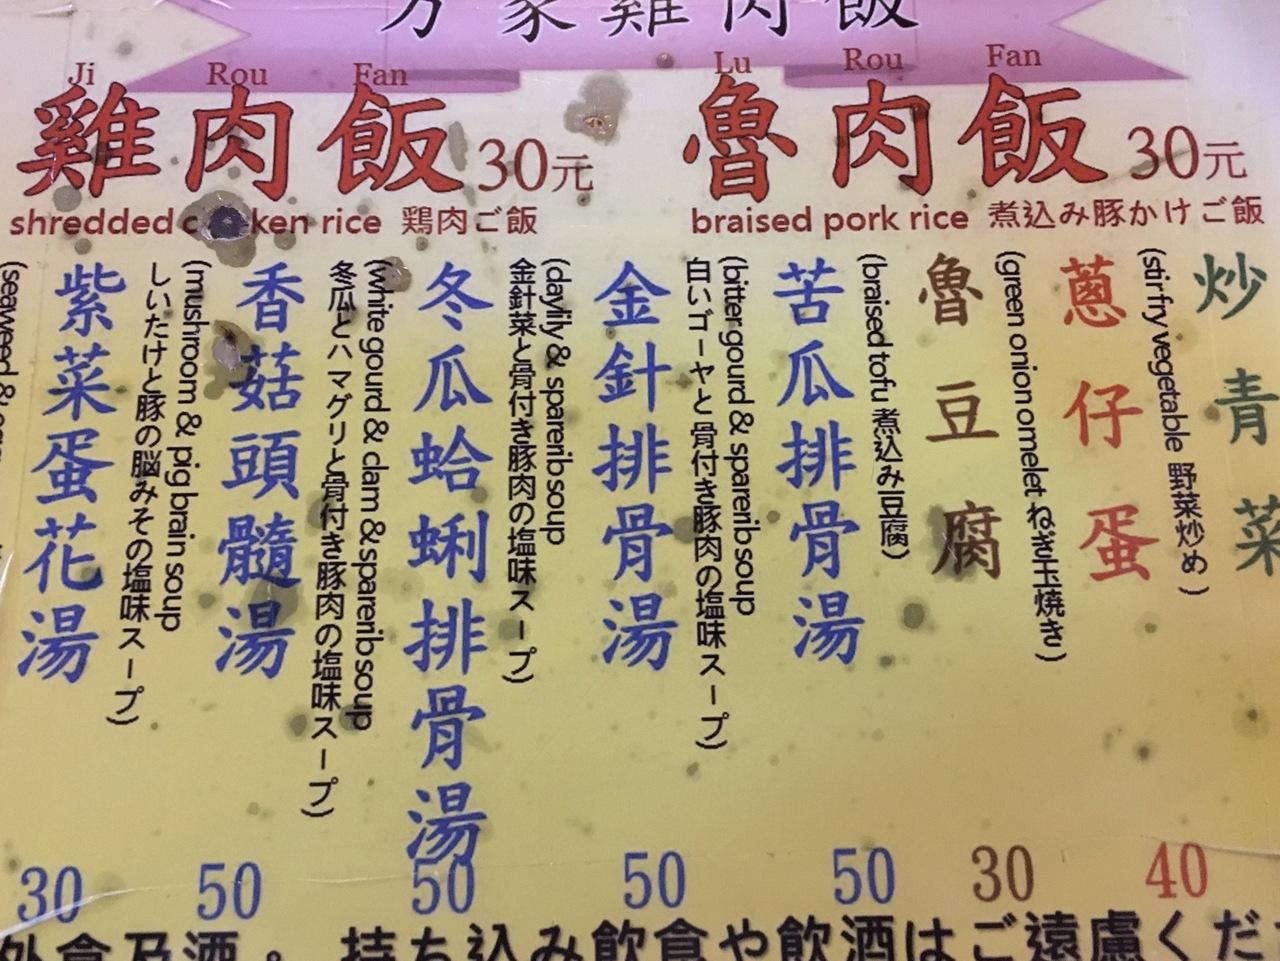 方家雞肉飯
Ji Rou Fan
雞肉飯 30元
shredded ken rice 鶏肉ご飯
Lu Rou Fan
魯肉飯 30元
braised pork rice 煮込み豚かけご飯
炒青菜
(stir fry vegetable 野菜炒め)
蔥仔蛋
40
(green onion omelet ねぎ玉焼き)
魯豆腐
30
(braised tofu 煮込み豆腐)
苦瓜排骨湯
50
(bitter gourd & sparerib soup
白いゴーヤと骨付き豚肉の塩味スープ)
金針排骨湯
50
(daylily & sparerib soup
金針菜と骨付き豚肉の塩味スープ)
冬瓜蛤蜊排骨湯
50
(white gourd & clam & sparerib soup
冬瓜とハマグリと骨付き豚肉の塩味スープ)
香菇頭髓湯
50
(mushroom & pig brain soup
しいたけと豚の脳みその塩味スープ)
紫菜蛋花湯
30
(seaweed &
外食及酒。 持ち込み飲食や飲酒はご遠慮くだ